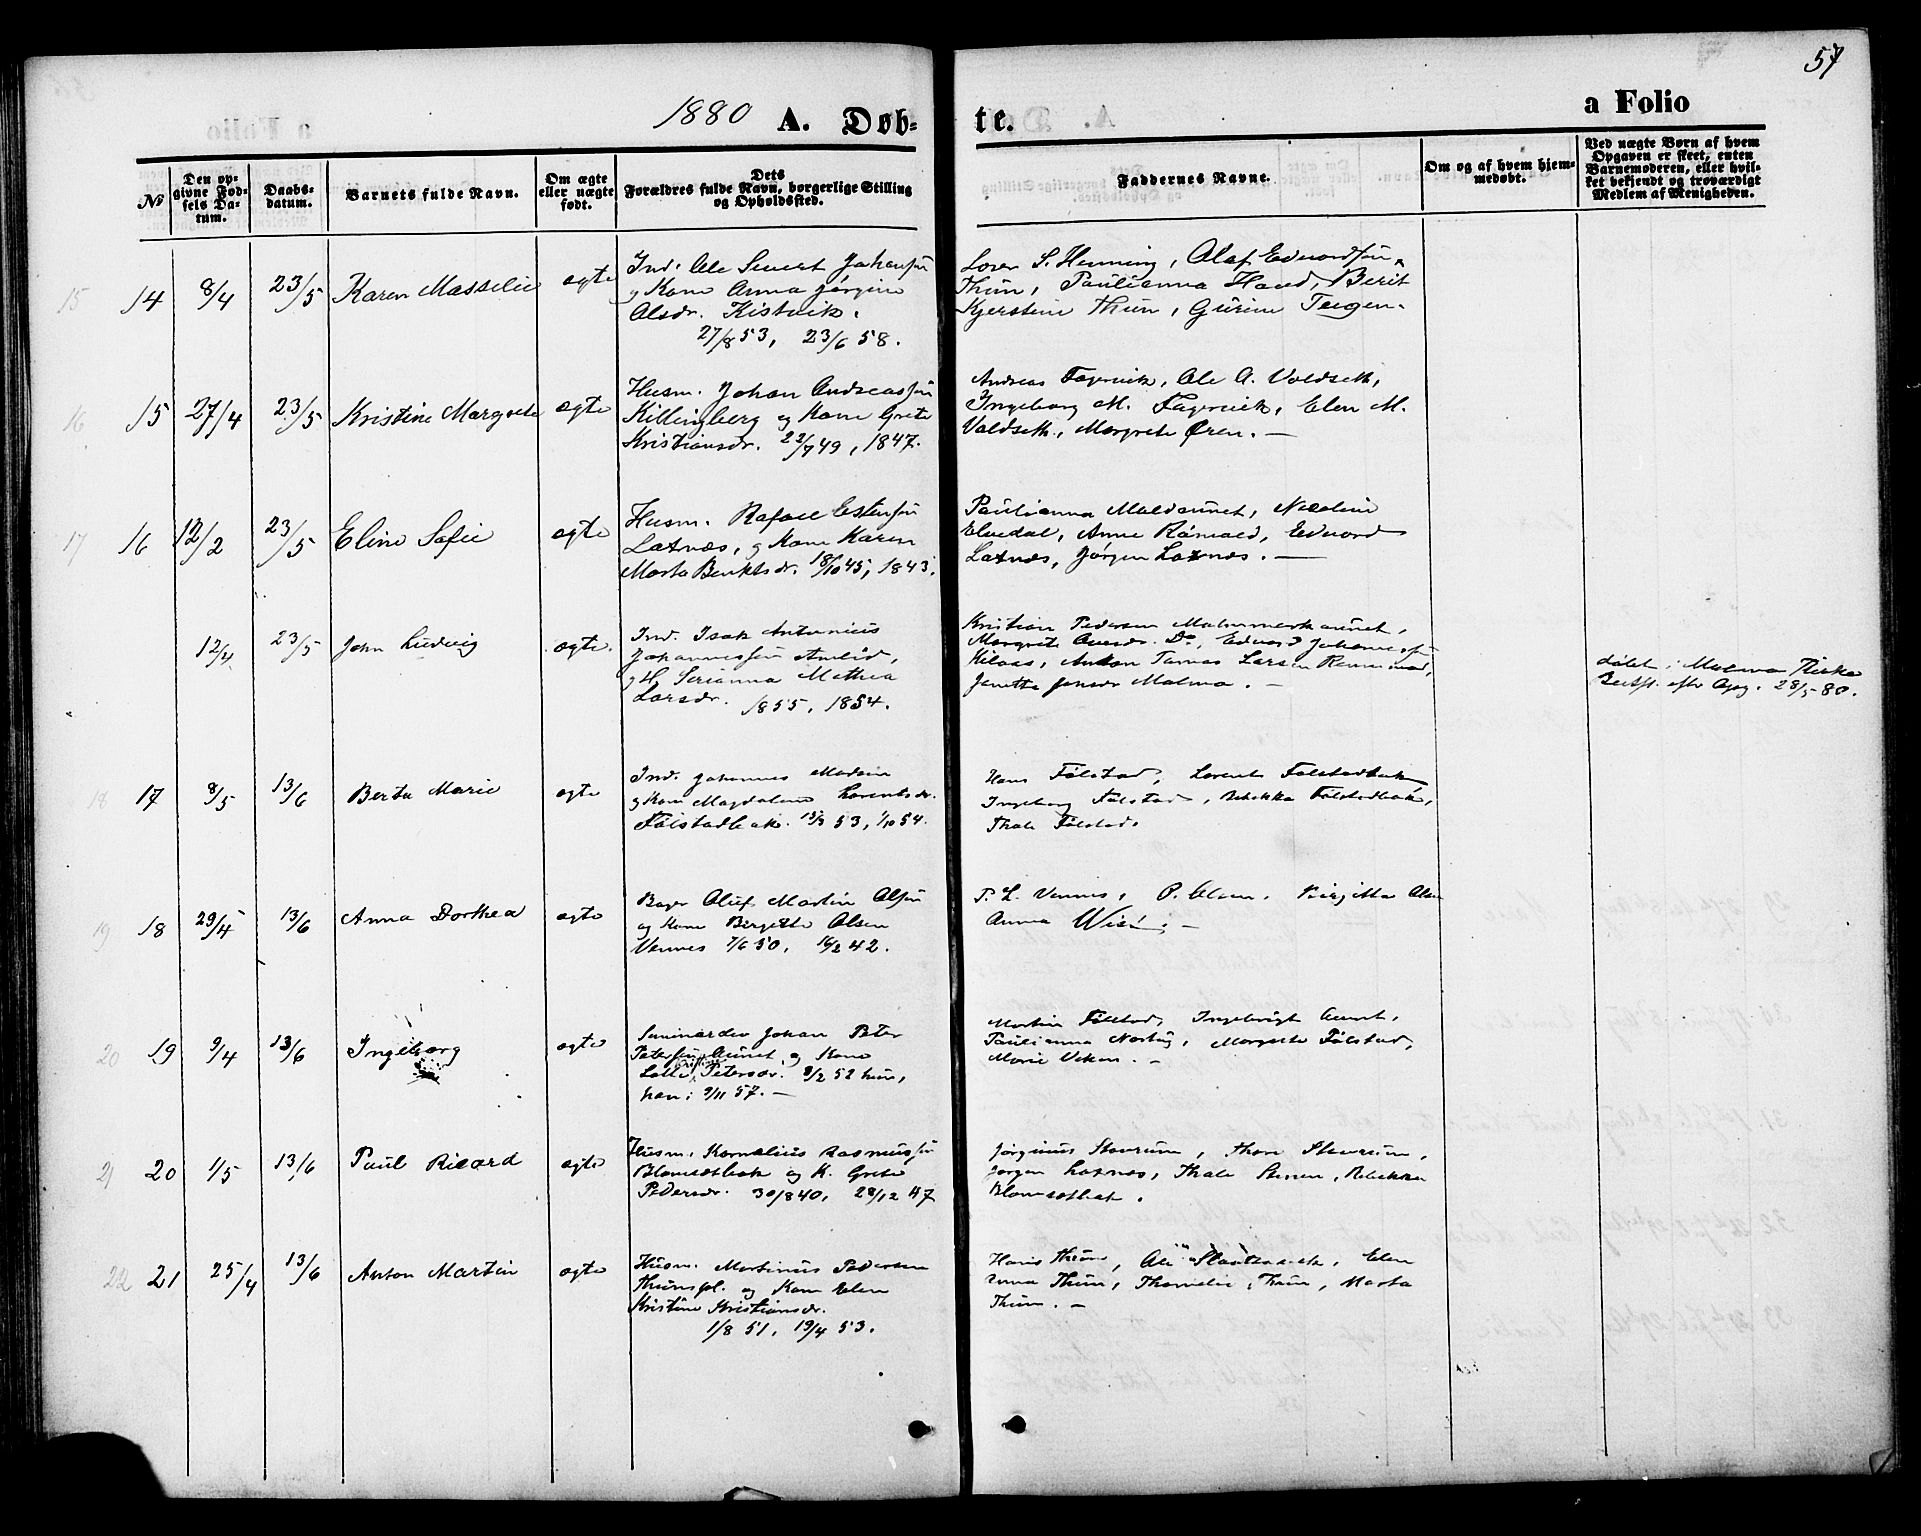 57
1880 A. Døb-
te.
a Folio
No
Den op-
givne Fød-
sels Da-
tum.
Daabs-
datum.
Barnets fulde Navn.
Om ægte
eller uægte
født.
Dets
Forældres fulde Navn, borgerlige Stilling
og Opholdssted.
Faddernes Navne.
Om og af hvem hjem-
medøbt.
Ved uægte Børn af hvem
Opgaven er skeet, enten
Barnemoderen, eller hvil-
ket bekjendt og troværdigt
Medlem af Menigheden.
15 14 8/4 23/5 Karen Masselie ægte
Ind. Ole Johansen
og Kone Anna Jørgine
Olsdr. Kistvik.
27/8 53, 23/6 58.
S. Henning, Olaf Edvardsøn
Thun, Paulianna Haad, Berit
Kjerstine Thun, Gurine Teigen.
16 15 27/4 23/5 Kristine Margrete ægte
Husm. Johan Andreassøn
Killingberg og Kone Grete
Kristiansdr. 22/7 49, 1847.
Andreas Fagervik, Ole A. Valdseth,
Ingeborg M. Fagervik, Elen M.
Valdseth, Margrete Øren. —
17 16 12/2 23/5 Eline Sofie ægte
Husm. Rafael Estensøn
Laxnæs, og Kone Karen
Marta Benktsdr. 18/10 45, 1843.
Paulianna Maldaunet, Nicoline
Elvedal, Anne Edvard
Laxnæs, Jørgen Laxnæs. —
12/4 23/5 John Ludvig ægte.
Ind. Isak Antonius
Johannessøn
og H. Serianna Mathea
Larsdr. 1855, 1854.
Kristian Pedersen
Margrete Do, Edvard Johannessøn
Anton Larsen
Janetta Jonsdr Malma. —
døbt i Malma Kirke
efter Opg. 28/5 80.
18 17 8/5 13/6 Berta Marie ægte
Ind. Johannes
og Kone Magdalena Lorentsdr.
Følstadbak. 13/3 53, 1/10 54.
Hans Følstad, Lorents Følstadbak,
Ingeborg Følstad, Rebekka Følstadbak,
Thale Følstad.
19 18 29/4 13/6 Anna Dorthea ægte
Oluf Martin Olsøn
og Kone Birgitte Olsen
Vennes 7/6 50, 16/2 42.
P. L. Vennes, P. Olsen, Birgitta Olsen
Anna —
20 19 9/4 13/6 Ingeborg ægte
Johan Peter
Petersøn Aunet og Kone
Petersdr. 8/2 52 hun,
han: 9/11 57. —
Martin Følstad, Ingebrigt Aunet,
Paulianna Margrete Følstad,
Marie —
21 20 1/5 13/6 Paul Ricard ægte
Husm. Kornelius Rasmussøn
og K. Grete
Pedersdr. 30/8 40, 28/12 47
Jørginus Stavrum, Thore Stavrum,
Jørgen Laxnæs, Thale Rebekka
22 21 25/4 13/6 Anton Martin ægte
Husm. Martinus Pedersen
Thunspl. og Kone Elen
Kristine Kristiansdr.
1/8 51, 19/4 53.
Hans Thun, Ole Elen
Anna Thun, Thun, Marta
Thun. —